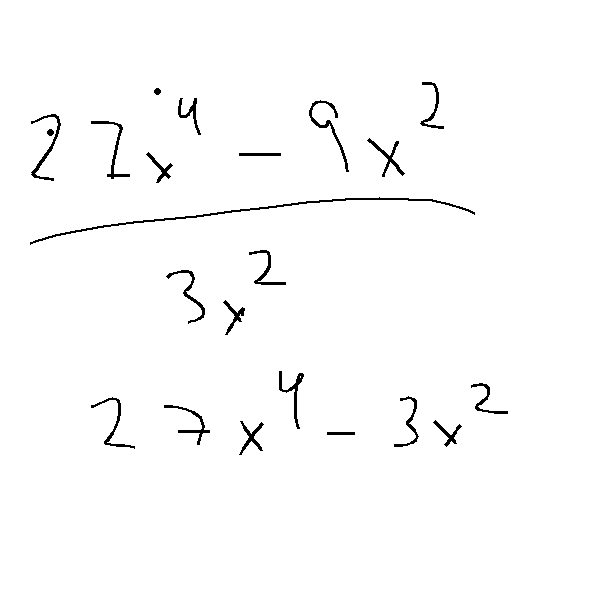 27x⁴ - 9x²
3x²
27x⁴ - 3x²